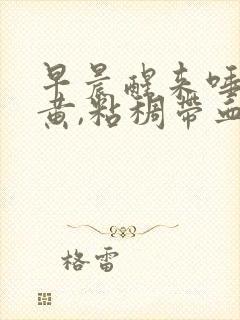 早晨醒来唾
黄,粘稠带血
格雷